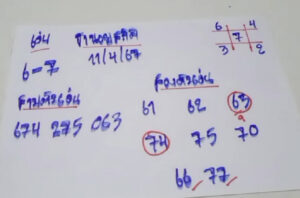 เด่น
6-7
11/4/67
6 4
7
3 2
สามตัวเด่น
674 275 063
สองตัวเด่น
61 62 63
74 75 70
66 77